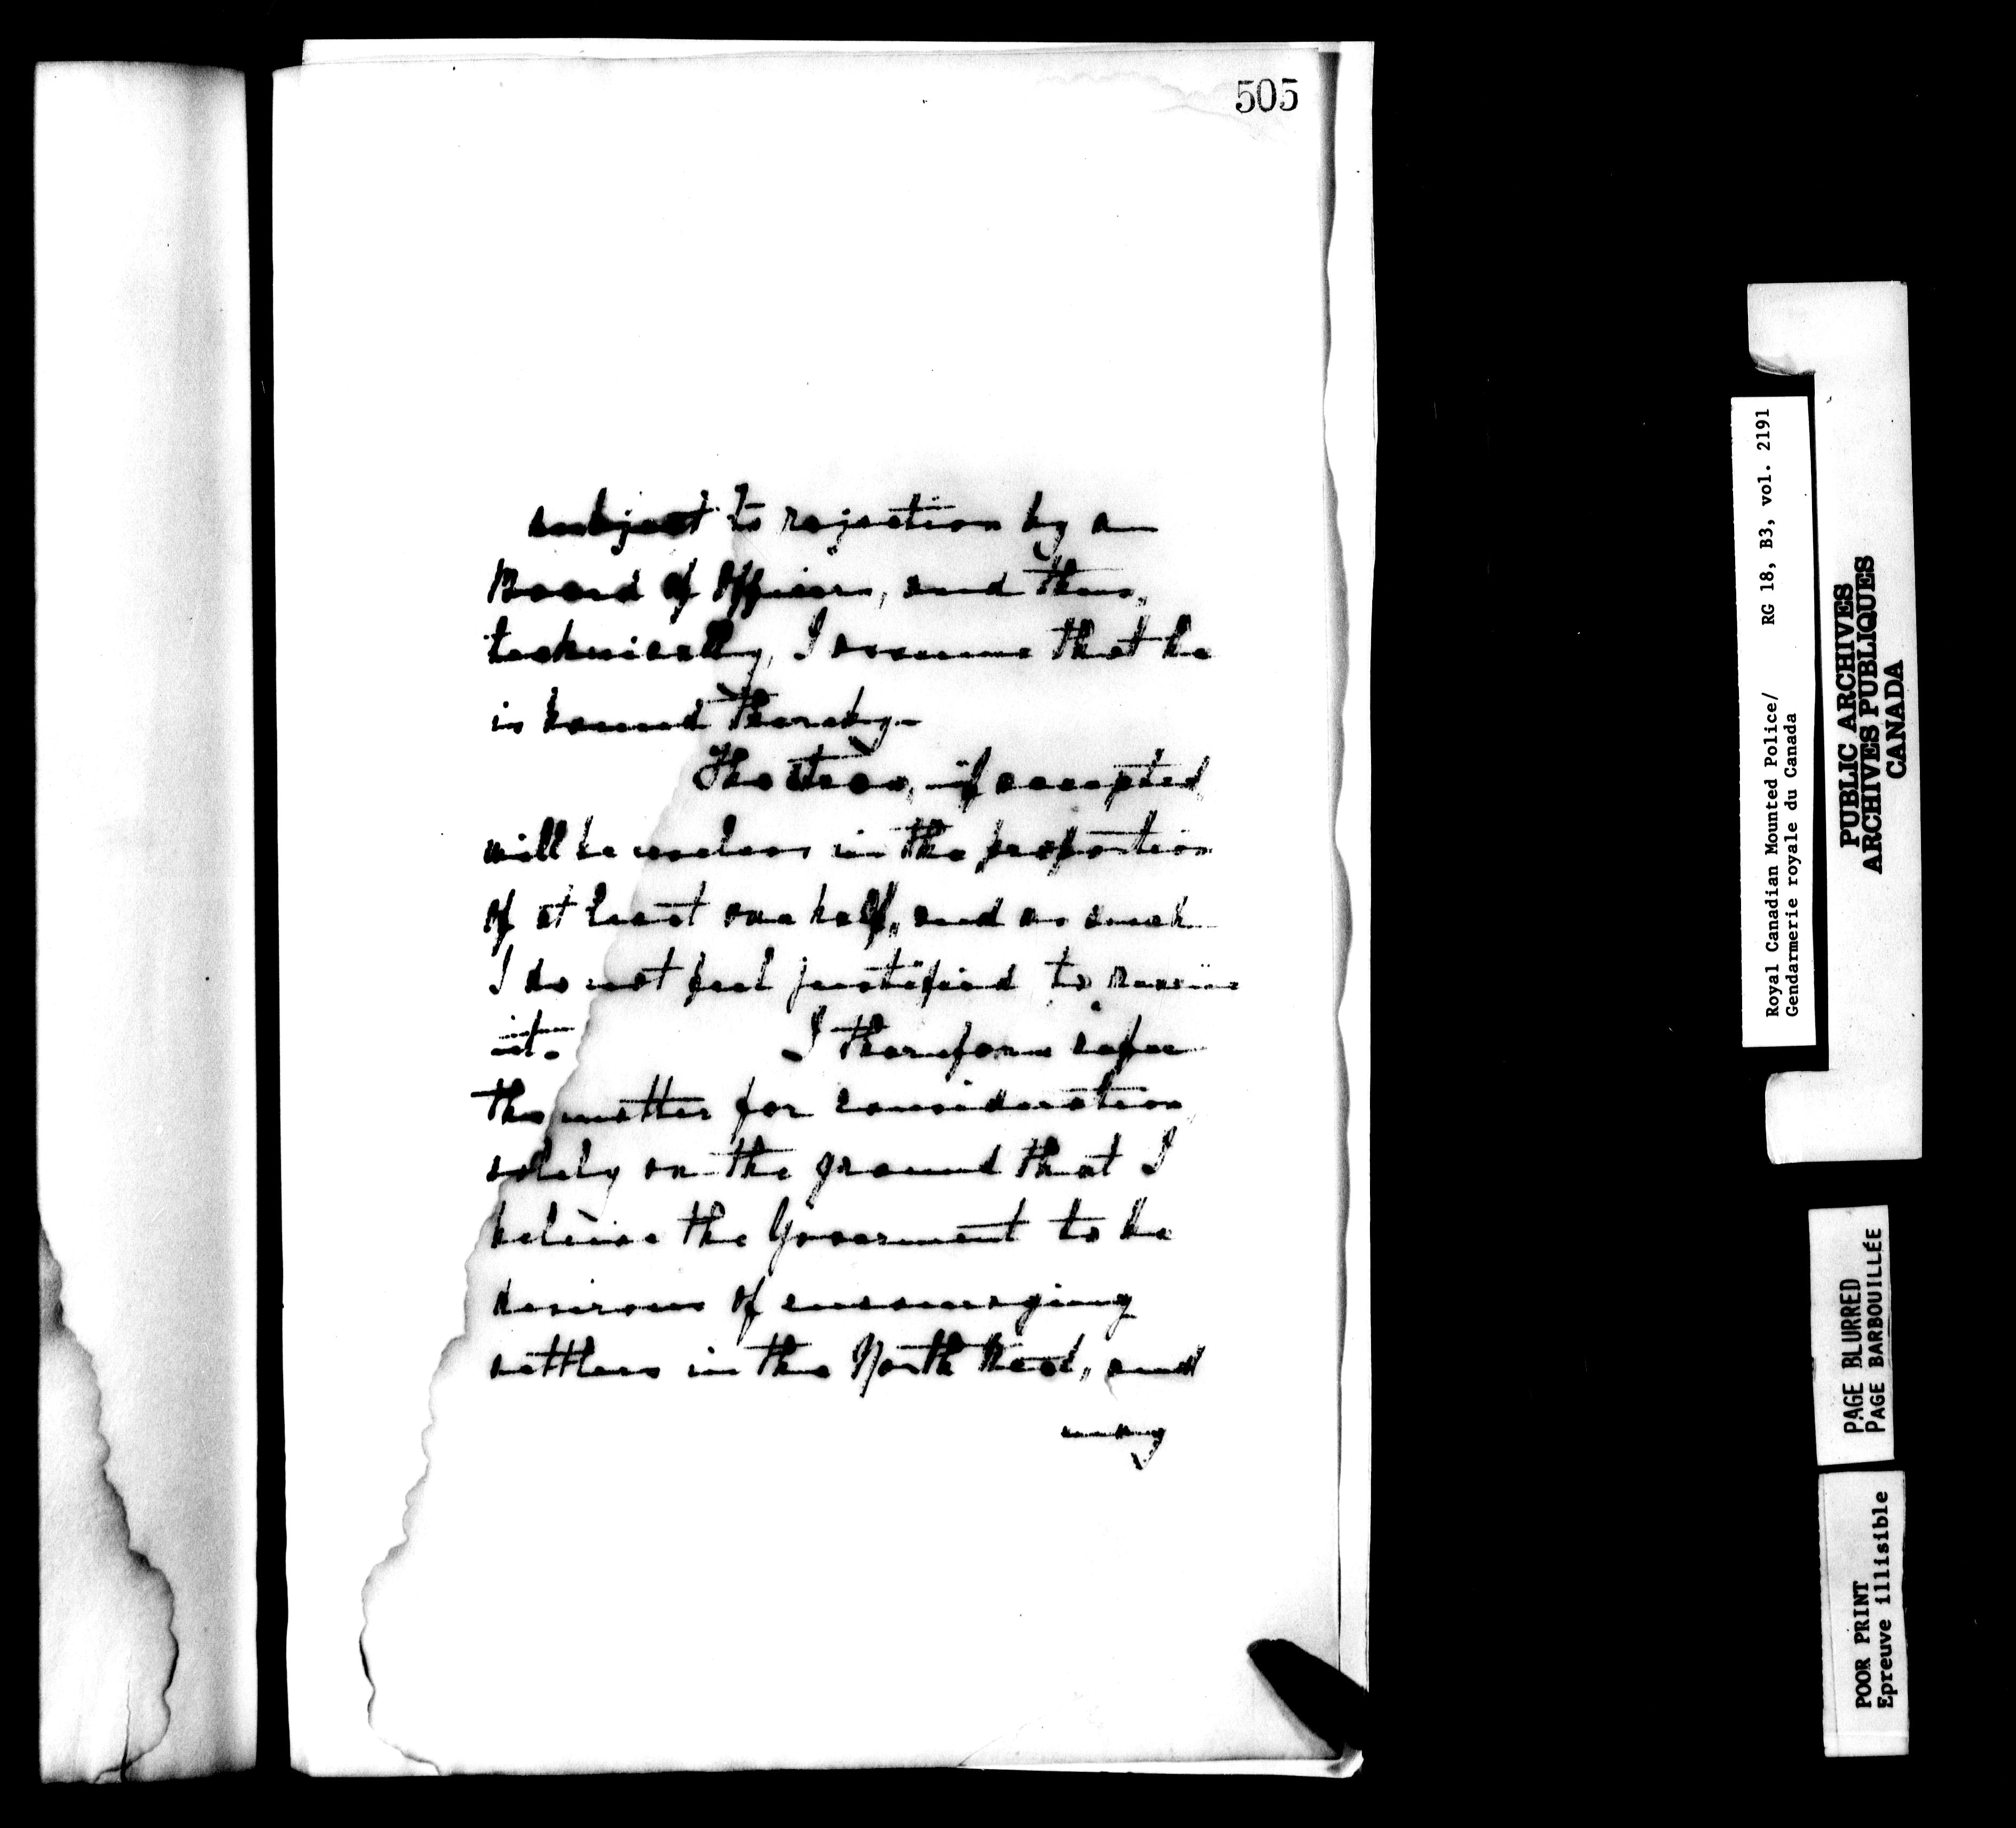 505
subject to rejection by a
Board of Officers, and thus,
technically, I assume that he
is bound thereby.
The straw, if accepted,
will be useless in the proportion
of at least one half, and as such
I do not feel justified to receive
it. I therefore refer
the matter for consideration
solely on the ground that I
believe the Government to be
desirous of encouraging
settlers in the North West, and
many
Royal Canadian Mounted Police/ RG 18, B3, vol. 2191
Gendarmerie royale du Canada
PUBLIC ARCHIVES
ARCHIVES PUBLIQUES
CANADA
PAGE BLURRED
PAGE BARBOUILLÉE
POOR PRINT
Epreuve illisible